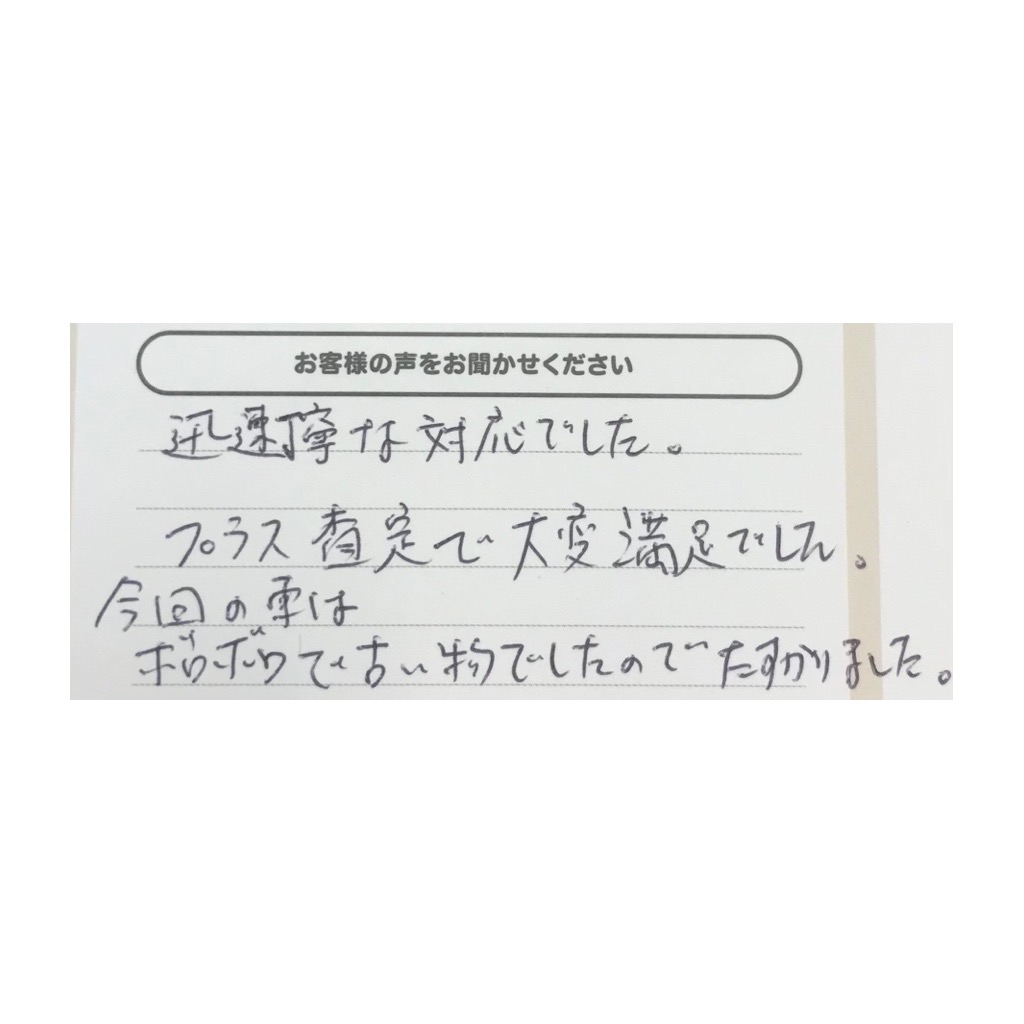 お客様の声をお聞かせください
迅速丁寧な対応でした。
プラス査定で大変満足でした。
今回の車は
ボロボロで古い物でしたのでたすかりました。